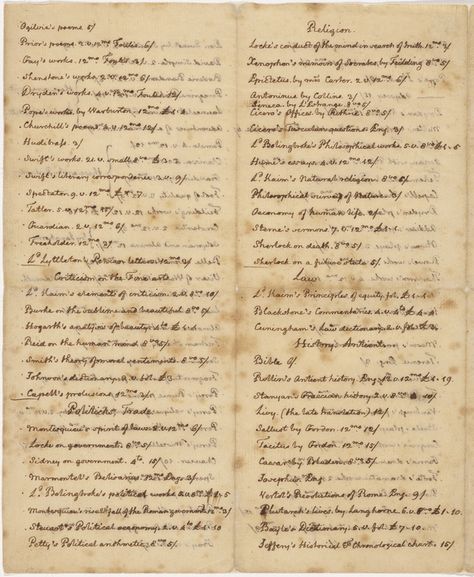 Ogilvie's poems. 5/
Prior's poems. 2.v. 12mo Foulis. 6/
Gay's works. 12mo Foulis. 3/
Shenstone's works. 2.v. 12mo 6/
Dryden's works. 4.v. 12mo Foulis. 12/
Pope's works. by Warburton. 12mo £1.4
Churchill's poems. 4.v. 12mo 12/
Hudibrass. 3/
Swift's works. 21.v. small 8vo £3.3
Swift's literary correspondence. 3.v. 9/
Spectator. 9.v. 12mo £1.7
Tatler. 5.v. 12mo 15/
Guardian. 2.v. 12mo 6/
Freeholder. 12mo 3/
Ld. Lyttleton's Persian letters. 12mo 3/
Criticism on the Fine arts.
Ld. Kaim's elements of criticism. 2.v. 8vo 10/
Burke on the sublime and beautiful. 8vo 5/
Hogarth's analysis of beauty. 4to £1.1
Reid on the human mind. 8vo 5/
Smith's theory of moral sentiments. 8vo 5/
Johnson's dictionary. 2.v. fol. £3
Capell's prolusions. 12mo 3/
Politicks, Trade.
Montesquieu's spirit of laws. 2.v. 12mo 6/
Locke on government. 8vo 5/
Sidney on government. 4to 15/
Marmontel's Belisarius. 12mo Eng. 3/
Ld. Bolingbroke's political works. 5.v. 8vo £1.5
Montesquieu's rise & fall of the Roman governmt. 12mo 3/
Steuart's Political oeconomy. 2.v. 4to £1.10
Petty's Political arithmetic. 8vo 5/
Religion.
Locke's conduct of the mind in search of truth. 12mo 3/
Xenophon's memoirs of Socrates. by Feilding. 8vo 5/
Epictetus. by mrs Carter. 2.v. 12mo 6/
Antoninus by Collins. 3/
Seneca. by L'Estrange. 8vo 5/
Cicero's Offices. by Guthrie. 8vo 5/
Cicero's Tusculan questions. Eng. 3/
Ld. Bolingbroke's Philosophical works. 5.v. 8vo £1.5
Hume's essays. 4.v. 12mo 12/
Ld. Kaim's Natural religion. 8vo 6/
Philosophical survey of Nature. 3/
Oeconomy of human life. 2/
Sterne's sermons. 7.v. 12mo £1.1
Sherlock on death. 8vo 5/
Sherlock on a future state. 5/
Law.
Ld. Kaim's Principles of equity. fol. £1.1
Blackstone's Commentaries. 4.v. 4to £4.4
Cuningham's law dictionary. 2.v. fol. £3
History. Antient.
Bible 6/
Rollin's Antient history. Eng. 13.v. 12mo £1.19
Stanyan's Graecian history. 2.v. 8vo 10/
Livy. (the late translation) 12/
Sallust by Gordon. 12mo 12/
Tacitus by Gordon. 12mo 15/
Caesar by Bladen. 8vo 5/
Josephus. Eng.
Vertot's Revolutions of Rome. Eng. 9/
Plutarch's lives. by Langhorne. 6.v. 8vo £1.10
Bayle's Dictionary. 5.v. fol. £7.10
Jeffery's Historical & Chronological chart. 15/